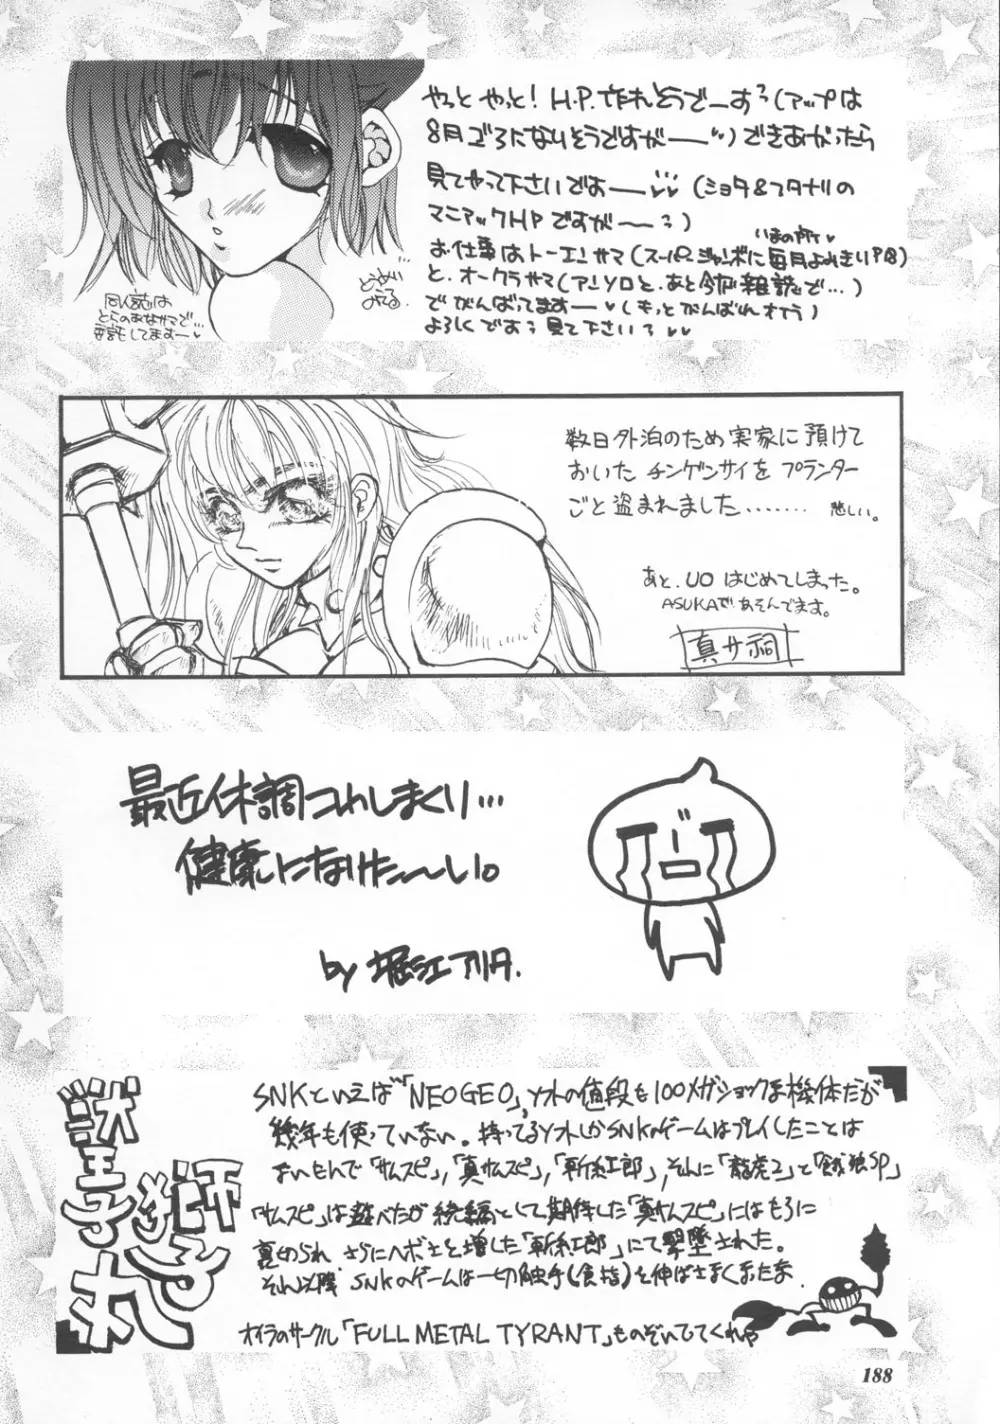 やっと やっと! H.P. 作れそうでーす(アップは
8月ゴロになりそうですがー)できあがったら
見てやって下さいですおー♥♥(ショタ&フタナリの
マニアックHPですがー)
いまの所♥
お仕事はトーエンサマ(スーパージャンボに毎月よみきり
と、オークラサマ(アンソロと、あと今度雑誌で…)
でがんばってますー♥(もっとがんばれオイラ)
よろしくです 見て下さい ♥♥
同人誌は
とらのあなサマで…
委託してますー♥
数日外泊のため実家に預けて
おいた チンゲンサイを プランター
ごと盗まれました........ 悲しい。
あと、UO はじめてしまった。
ASUKAであそんでます。
真サ祠
最近体調こわしまくり…
健康になりた〜い。
by 堀江アリタ.
獣王子獅子丸
SNKといえば「NEOGEO」、ソフトの値段も100メガショックな機体だが
幾年も使っていない。持ってるソフトしかSNKのゲームはプレイしたことは
ないんで「サムスピ」,「真サムスピ」,「斬紅郎」,それに「龍虎2」と「餓狼SP」
「サムスピ」は遊べたが続編として期待した「真サムスピ」にはもろに
裏切られ さらにヘボさを増した「斬紅郎」にて撃墜された。
それ以降 SNKのゲームは一切触手(食指)を伸ばさなくなったな
オイラのサークル「FULL METAL TYRANT」ものぞいてってくれや
188